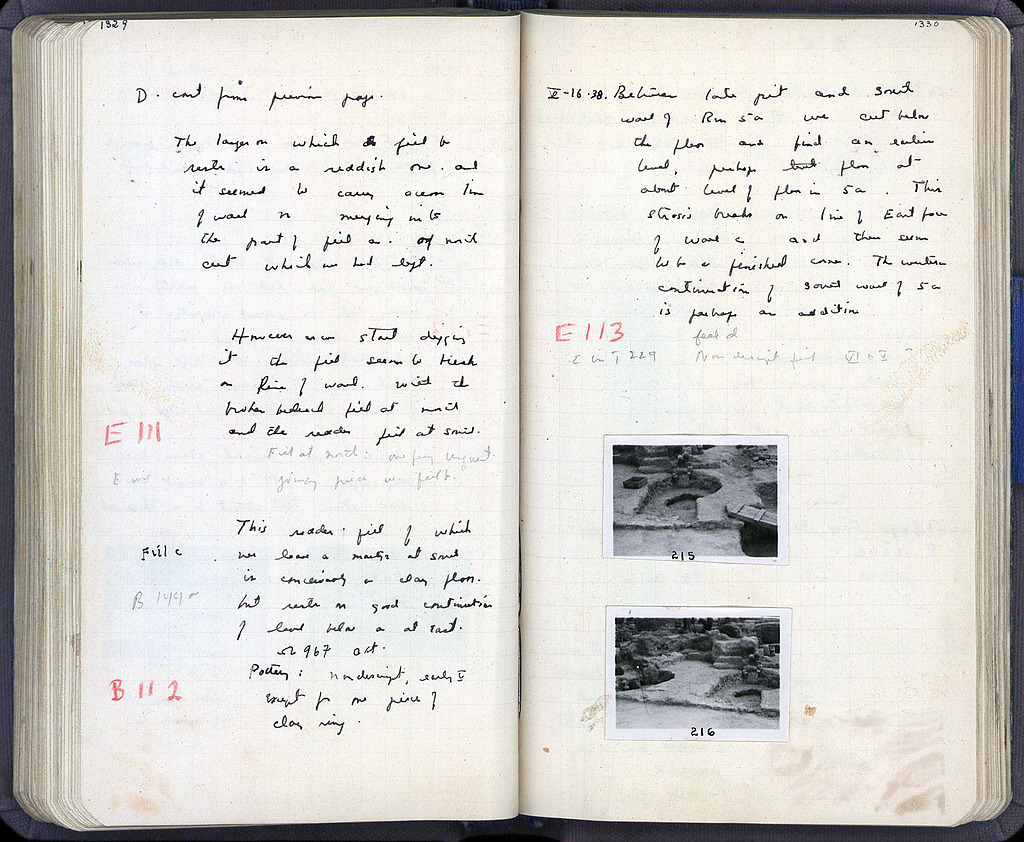 1329
D. cont from previous page.
The layer on which fill b
rests is a reddish one. and
it seemed to carry across line
of wall merging into
the part of fill a. of north
cut which we had left.
However as we start digging
it the fill seems to break
on line of wall. with the
broken bedrock fill at north
and the redder fill at south.
E 111
Fill at north:
joining piece
This redder fill of which
Fill c
we leave a at south
is conceivably a clay floor.
B 144
but rests on good continuation
of level below a at East.
967
Pottery: nondescript, early V
B 112
except for one piece of
clay ring.
1330
V-16-38. Between late pit and south
wall of Rm 5a we cut below
the floor and find an earlier
level, perhaps floor at
about level of floor in 5a. This
strosis breaks on line of East face
of wall c and there seems
to be a finished corner. The western
continuation of south wall of 5a
is perhaps an addition.
E 113
fill d
229 Nondescript
215
216